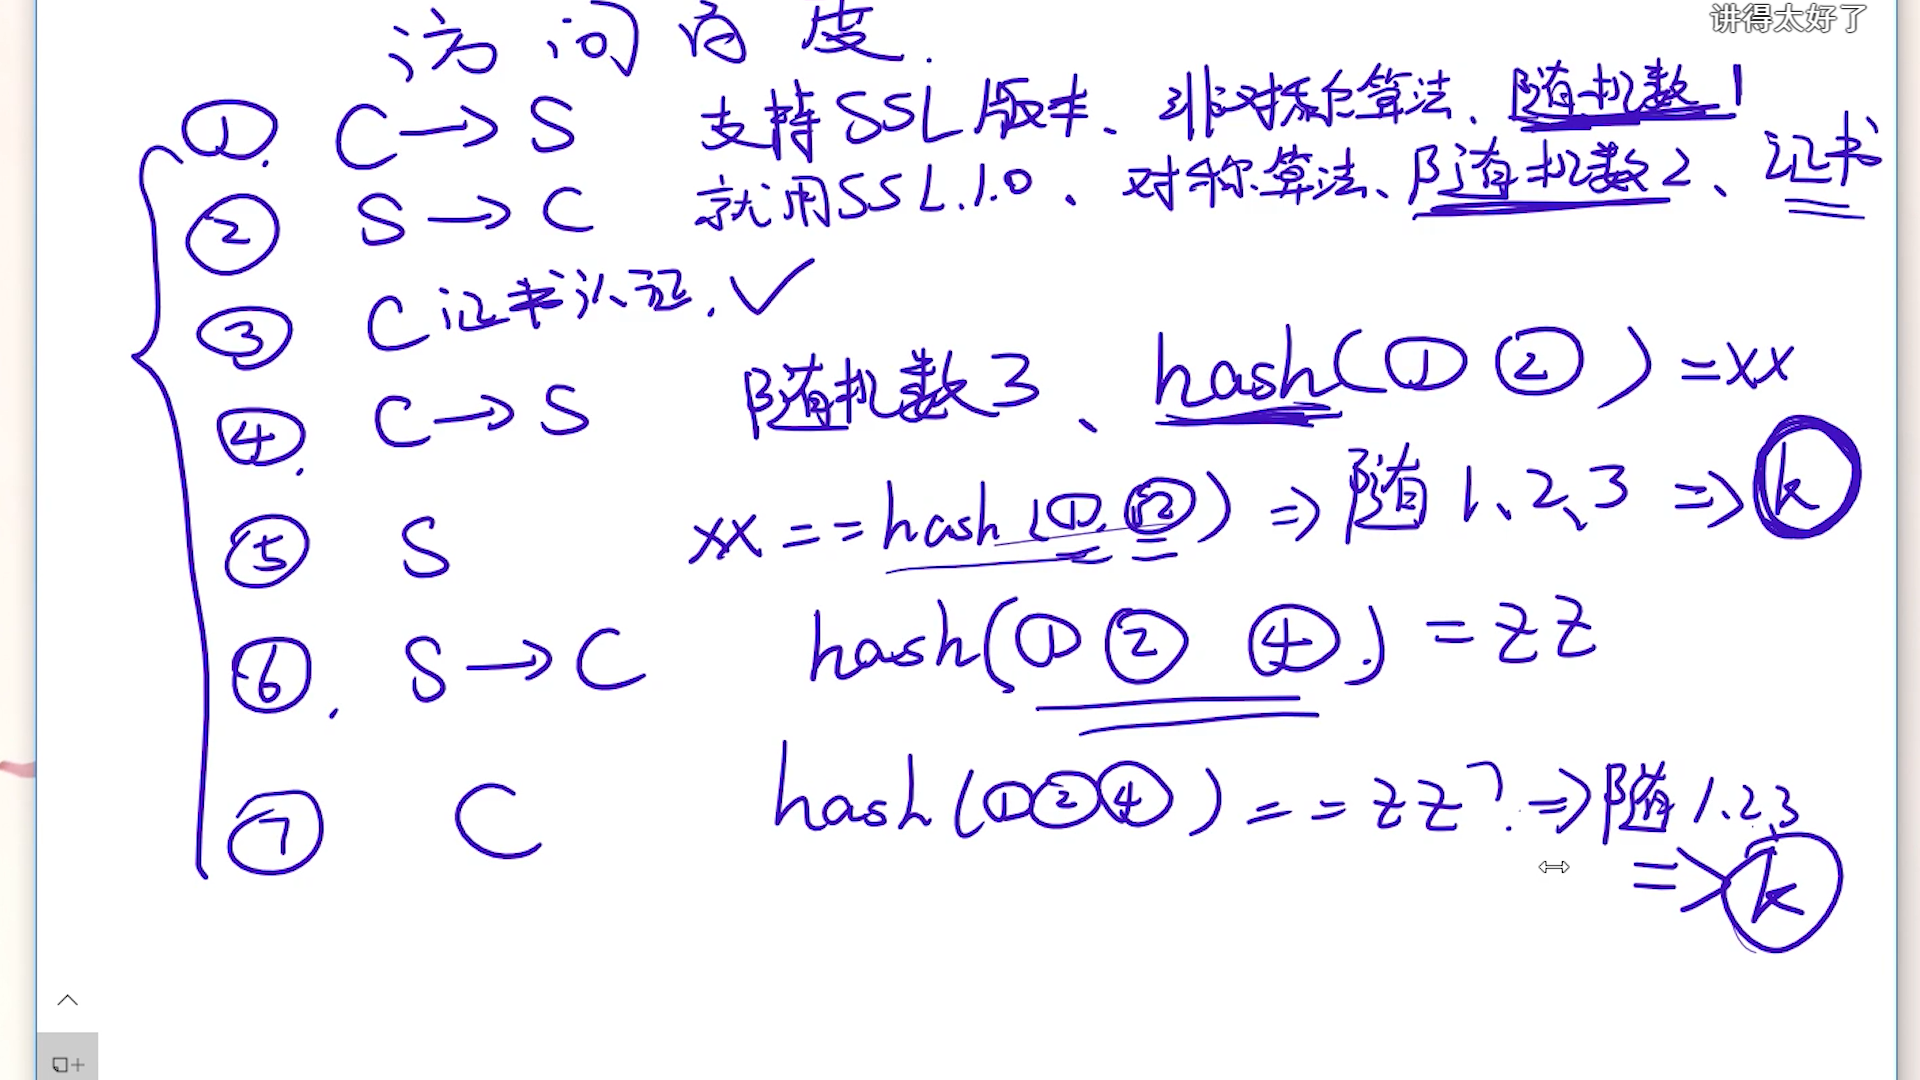 讲得太好了
访问百度.
①. C→S 支持SSL版本、非对称算法、随机数1
② S→C 就用SSL.1.0、对称算法、随机数2、证书
③ C证书认证. ✓
④. C→S 随机数3、hash(① ②)=xx
⑤ S xx==hash(①.②)⇒随1、2、3⇒k
⑥. S→C hash(① ② ④.)=zz
⑦ C hash(①②④)==zz?.⇒随1、2、3
⇒k